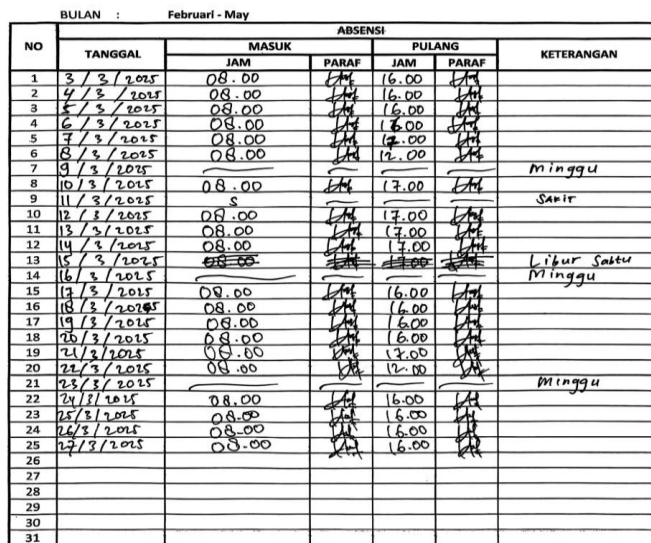 BULAN : Februari - May
ABSENSI
NO TANGGAL MASUK PULANG KETERANGAN
JAM PARAF JAM PARAF
1 3/3/2025 08.00 16.00
2 4/3/2025 08.00 16.00
3 5/3/2025 08.00 16.00
4 6/3/2025 08.00 16.00
5 7/3/2025 08.00 12.00
6 8/3/2025 08.00 12.00
7 9/3/2025 Minggu
8 10/3/2025 08.00 17.00
9 11/3/2025 S SAKIT
10 12/3/2025 08.00 17.00
11 13/3/2025 08.00 17.00
12 14/3/2025 08.00 17.00
13 15/3/2025 08.00 17.00 Libur Sabtu
14 16/3/2025 Minggu
15 17/3/2025 08.00 16.00
16 18/3/2025 08.00 16.00
17 19/3/2025 08.00 16.00
18 20/3/2025 08.00 16.00
19 21/3/2025 08.00 17.00
20 22/3/2025 08.00 12.00
21 23/3/2025 Minggu
22 24/3/2025 08.00 16.00
23 25/3/2025 08.00 16.00
24 26/3/2025 08.00 16.00
25 27/3/2025 08.00 16.00
26
27
28
29
30
31